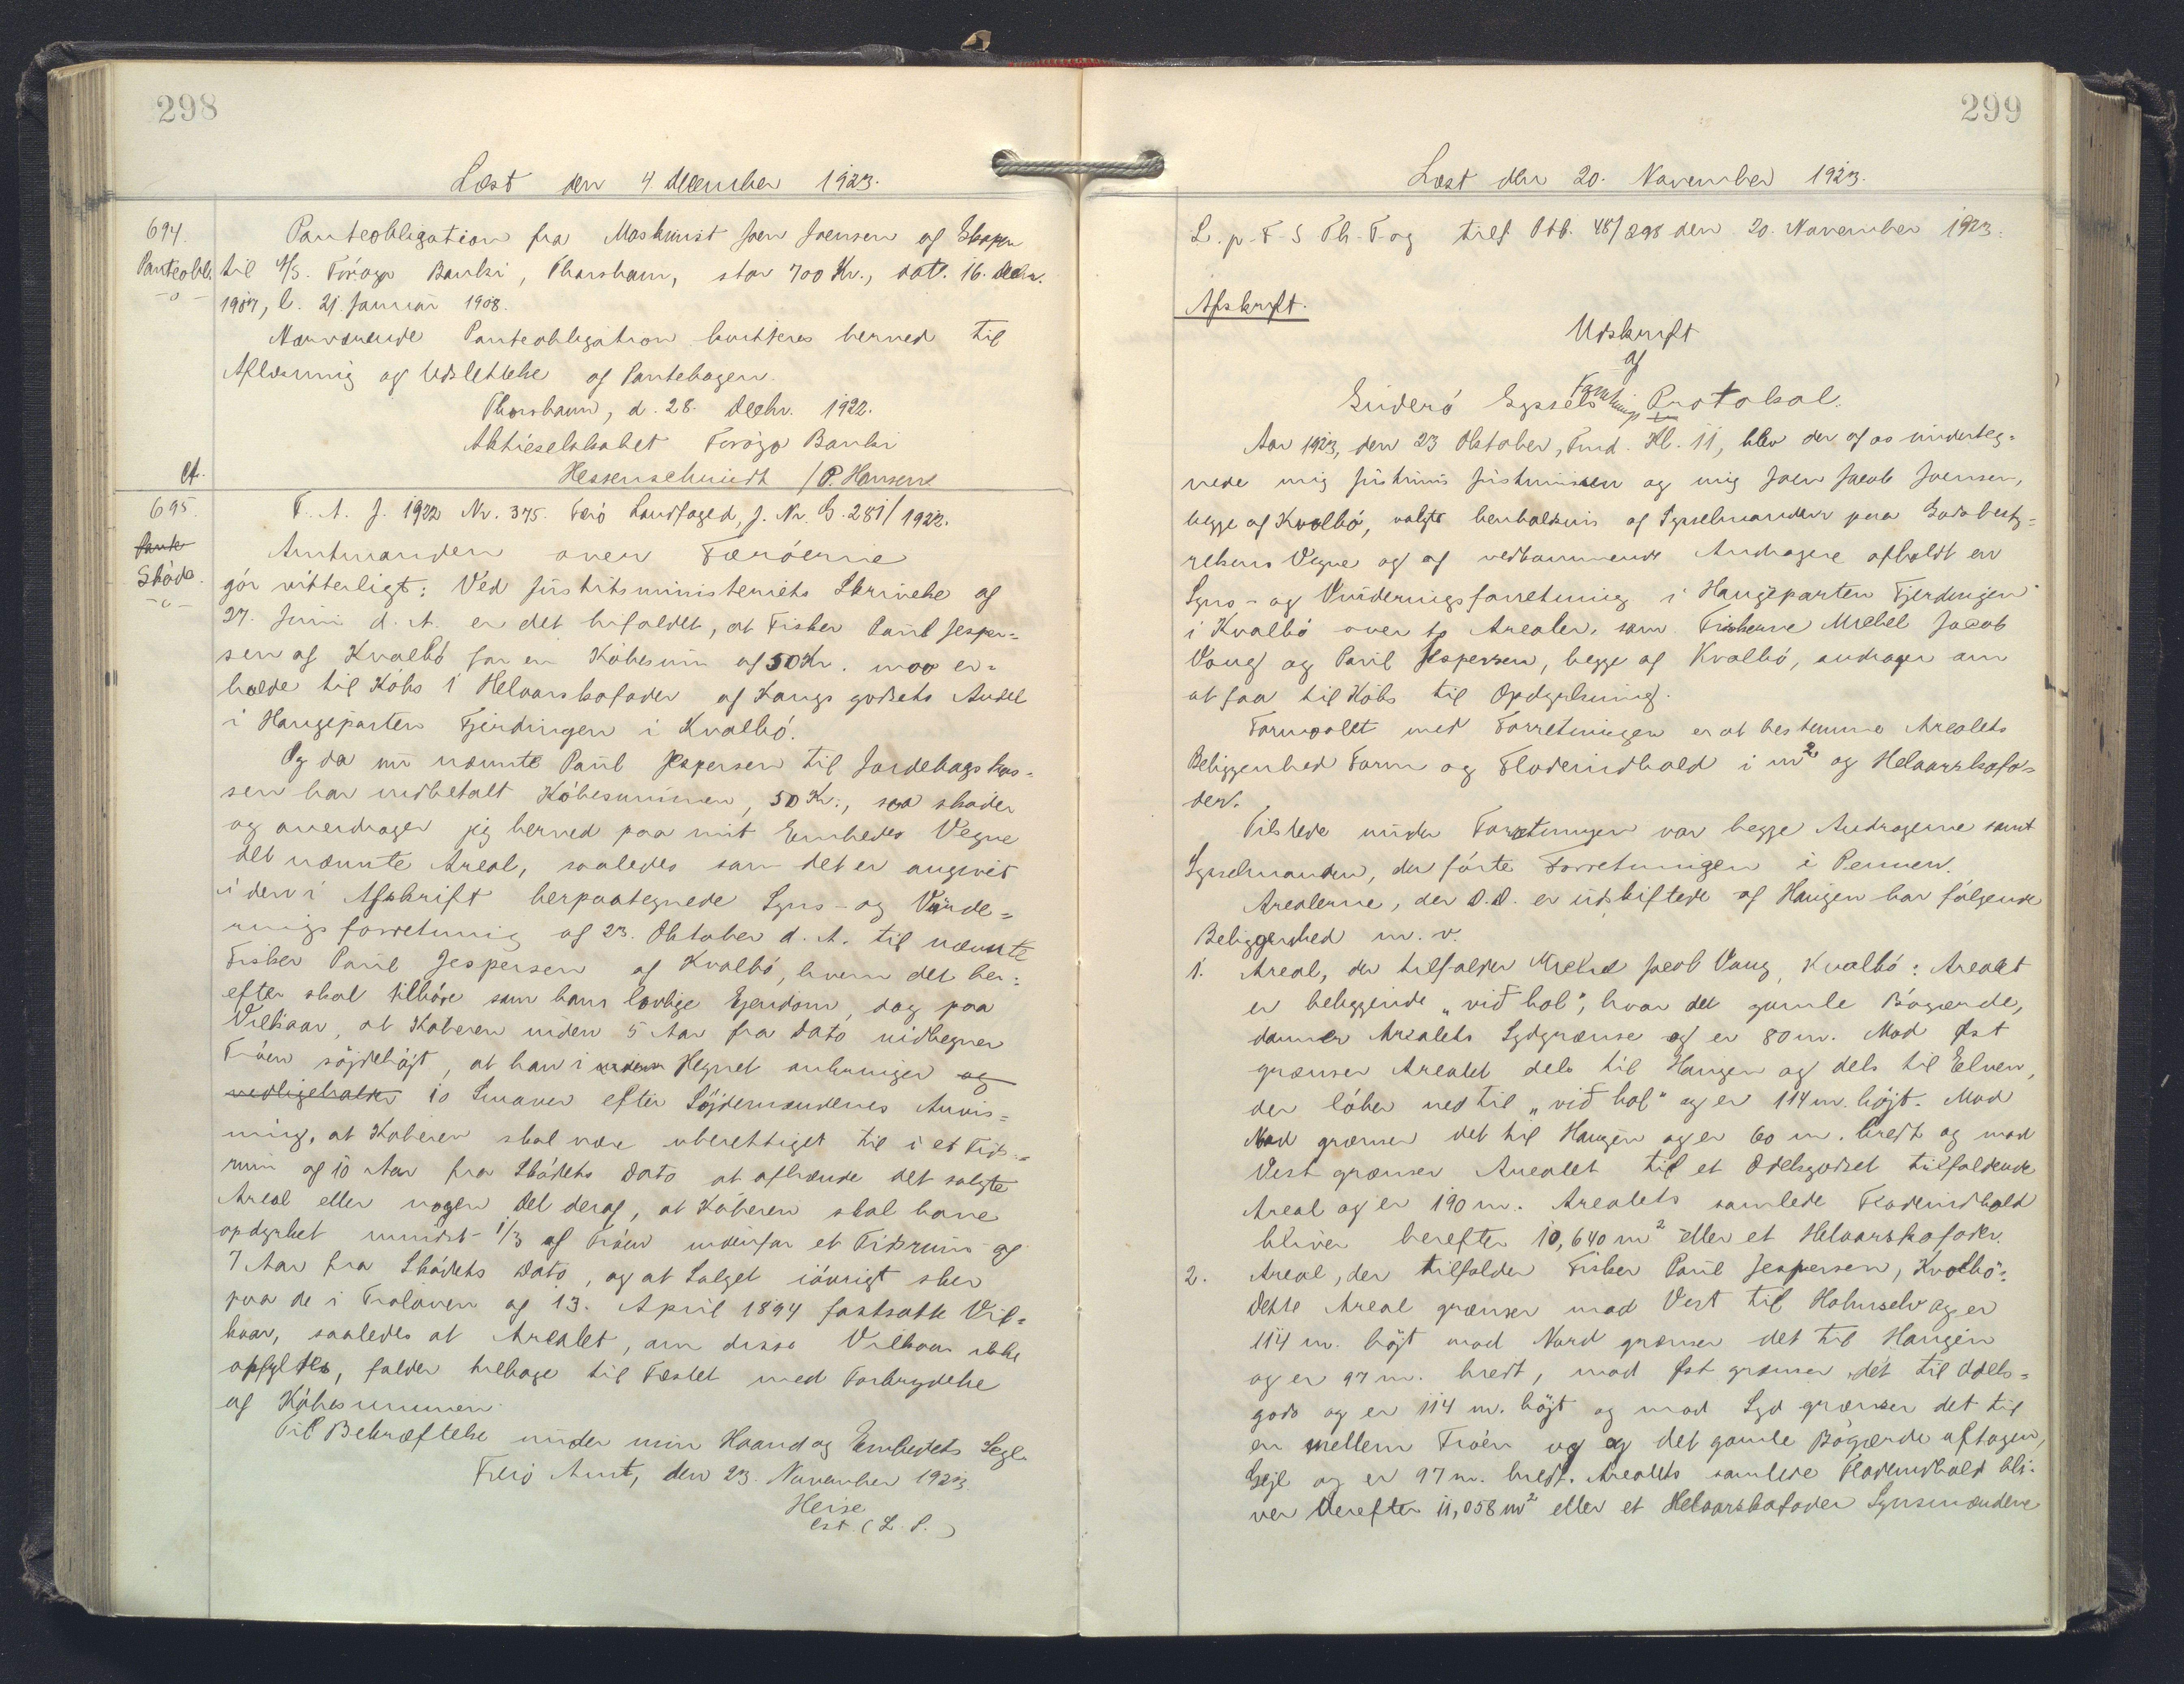 298
Læst den 4. december 1923.
694.
Panteobl.
-o-
Panteobligation fra Maskinist Joen Joensen af Skopen
til A/S. Föroya Banki, Thorshavn, stor 700 Kr., dat. 16. decbr.
1907, l. 21. Januar 1908.
Nærværende Panteobligation kvitteres herved til
Aflæsning og Udslettelse af Pantebogen.
Thorshavn, d. 28. decbr. 1922.
Aktieselskabet Föroya Banki
Hessenschmidt / P. Hansen
Ct.
695.
Pante
Skøde.
-o-
F. A. J. 1922 Nr. 375. Færö Landfoged, J. Nr. G. 281/1922.
Amtmanden over Færöerne
gör vitterligt: Ved Justitsministeriets Skrivelse af
27. Juni d. A. er det bifaldet, at Fisker Paul Jesper=
sen af Kvalbö for en Köbesum af 50 Kr. maa er=
holde til Köbs 1 Helaarskofoder af Kongsgodsets Andel
i Haugeparten Fjerdingen i Kvalbö.
Og da nu nævnte Paul Jespersen til Jordebogskas=
sen har indbetalt Köbesummen, 50 Kr., saa sköder
og overdrager jeg herved paa mit Embedes Vegne
det nævnte Areal, saaledes som det er angivet
i den i Afskrift herpaategnede Syns- og Vurde=
ringsforretning af 23. Oktober d. A. til nævnte
Fisker Paul Jespersen af Kvalbö, hvem det her=
efter skal tilhöre som hans lovlige Ejendom, dog paa
Vilkaar, at Köberen inden 5 Aar fra Dato indhegner
Tröen söjdehöjt, at han i Hegnet anbringer og
vedligeholder 10 Smaver efter Söjdemændenes Anvis=
ning, at Köberen skal være uberettiget til i et Tids=
rum af 10 Aar fra Sködets Dato at afhænde det solgte
Areal eller nogen Del deraf, at Köberen skal have
opdyrket mindst 1/3 af Tröen indenfor et Tidsrum af
7 Aar fra Sködets Dato, og at Salget iövrigt sker
paa de i Trøloven af 13. April 1894 fastsatte Vil=
kaar, saaledes at Arealet, om disse Vilkaar ikke
opfyldes, falder tilbage til Fæstet med Forbrydelse
af Köbesummen.
Til Bekræftelse under min Haand og Embedets Segl.
Færö Amt, den 23. November 1923.
Heise
cst. (L. S.)
299
Læst den 20. November 1923.
L. p. F-S Th-T-og tilf Ptb. 48/298 den 20. November 1923.
Afskrift.
Udskrift
af
Suderö Syssels Forretnings Protokol.
Aar 1923, den 23 Oktober, Fmd. Kl. 11, blev der af os underteg=
nede mig Justinus Justinussen og mig Joen Jacob Joensen,
begge af Kvalbö, valgte henholdsvis af Sysselmanden paa Godsbesty=
relsens Vegne og af vedkommende Andragere afholdt en
Syns- og Vurderingsforretning i Haugeparten Fjerdingen
i Kvalbö over to Arealer, som Fiskerne Mickel Jacob
Vang og Paul Jespersen, begge af Kvalbö, andrager om
at faa til Köbs til Opdyrkning.
Formaalet med Forretningen er at bestemme Arealets
Beliggenhed Form og Fladeindhold i m² og Helaarskofo=
der.
Tilstede under Forretningen var begge Andragerne samt
Sysselmanden, der förte Forretningen i Pennen.
Arealerne, der D.D. er udskiftede af Haugen har følgende
Beliggenhed m. v.
1. Areal, der tilfalder Mickel Jacob Vang, Kvalbö: Arealet
er beliggende „við hol“, hvor det gamle Bögærde,
danner Arealets Sydgrænse og er 80 m. Mod Øst
grænser Arealet dels til Haugen og dels til Elven,
der löber ned til „við hol“ og er 114 m. höjt. Mod
Nord grænser det til Haugen og er 60 m. bredt og mod
Vest grænser Arealet til et Odelsgodset tilfaldende
Areal og er 190 m. Arealets samlede Fladeindhold
bliver herefter 10,640 m² eller et Helaarskofoder.
2. Areal, der tilfalder Fisker Paul Jespersen, Kvalbö:
Dette Areal grænser mod Vest til Holmselv og er
114 m. höjt mod Nord grænser det til Haugen
og er 97 m. bredt, mod Øst grænser det til Odels=
gods og er 114 m. höjt og mod Syd grænser det til
en mellem Tröen og og det gamle Bögærde aftagen
Gejl og er 97 m. bredt. Arealets samlede Fladeindhold bli-
ver derefter 11,058 m² eller et Helaarskofoder Synsmændene